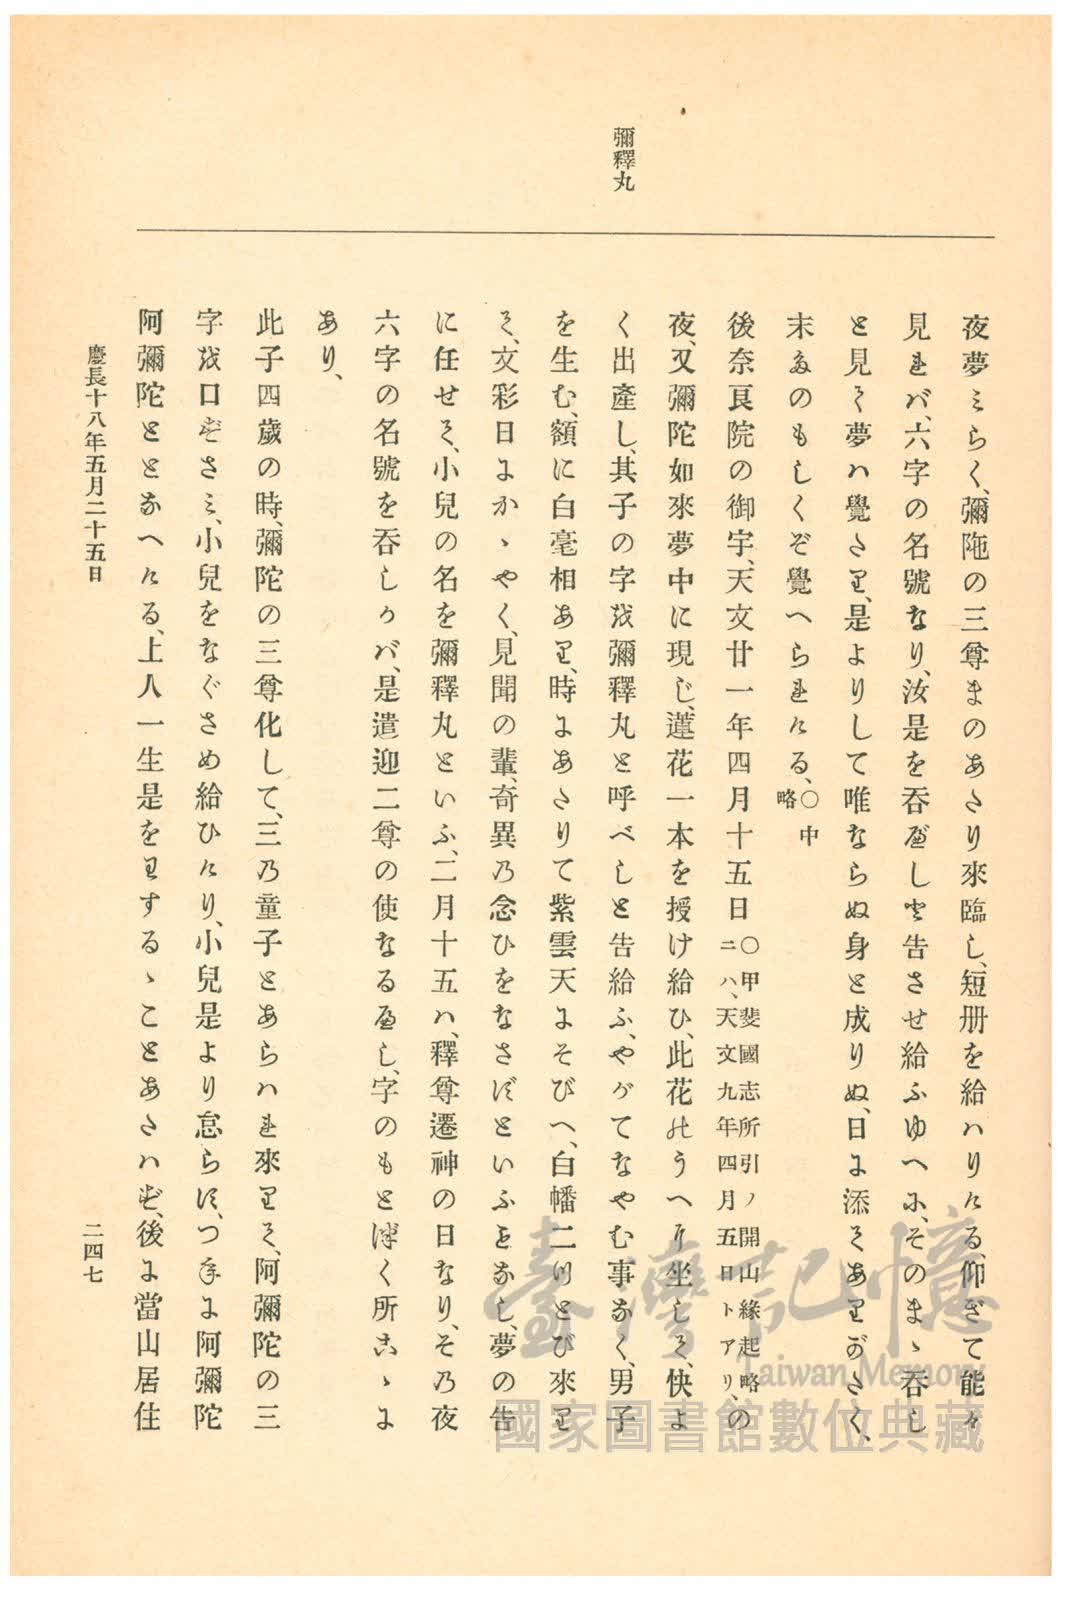 彌釋丸
夜夢ミらく、彌陁の三尊まのあたり來臨し、短册を給ハりける、仰ぎて能々
見れバ、六字の名號なり、汝是を吞べしと告させ給ふゆへに、そのまゝ吞し
と見て夢ハ覺たり、是よりして唯ならぬ身と成りぬ、日に添てありがたく、
末たのもしくぞ覺へられける、〇中略
後奈良院の御宇、天文廿一年四月十五日〇甲斐國志所引ノ開山緣起略ニハ、天文九年四月五日トアリ、の
夜、又彌陀如來夢中に現じ、蓮花一本を授け給ひ、此花のうへに坐して、快よ
く出產し、其子の字を彌釋丸と呼べしと告給ふ、やがてなやむ事なく、男子
を生む、額に白毫相あり、時にあたりて紫雲天にそびへ、白幡二ツとび來り
て、文彩日にかゝやく、見聞の輩、奇異乃念ひをなさずといふことなし、夢の告
に任せて、小兒の名を彌釋丸といふ、二月十五ハ、釋尊遷神の日なり、その夜
六字の名號を吞しかバ、是遣迎二尊の使なるべし、字のもと附く所こゝに
あり、
此子四歲の時、彌陀の三尊化して、三乃童子とあらハれ來りて、阿彌陀の三
字を口ずさミ、小兒をなぐさめ給ひけり、小兒是より怠らず、つねに阿彌陀
阿彌陀ととなへける、上人一生是をわするゝことあたハず、後に當山居住
慶長十八年五月二十五日
二四七
臺灣記憶
Taiwan Memory
國家圖書館數位典藏